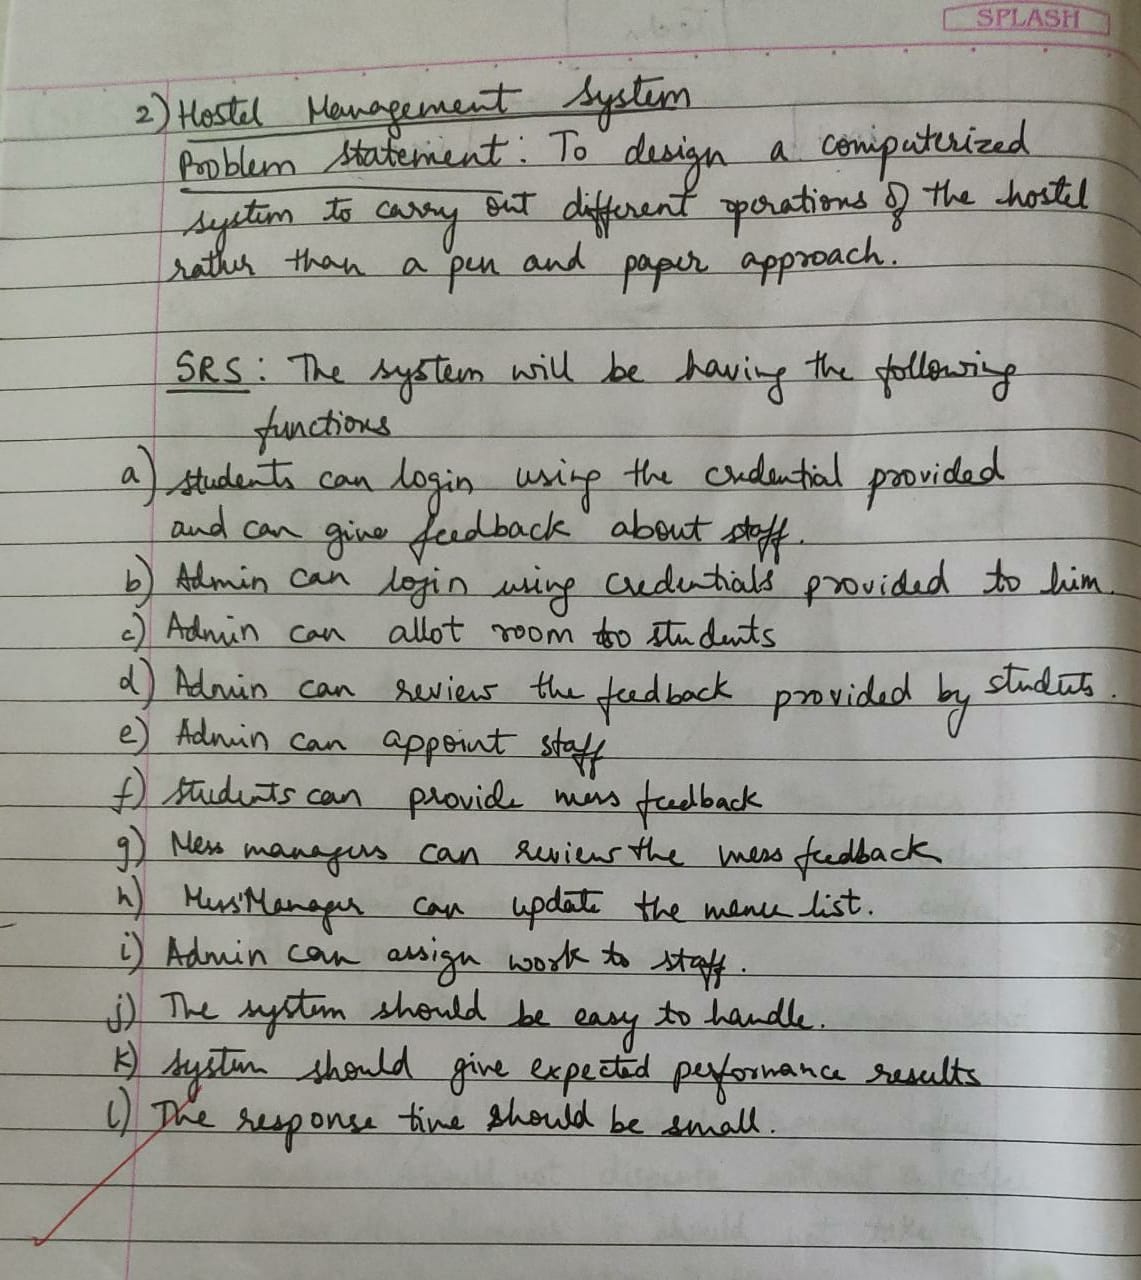 SPLASH
2) Hostel Management System
Problem Statement: To design a computerized
system to carry out different operations of the hostel
rather than a pen and paper approach.
SRS: The system will be having the following
functions
a) students can login using the credential provided
and can give feedback about staff.
b) Admin can login using credentials provided to him.
c) Admin can allot room to students
d) Admin can review the feedback provided by students.
e) Admin can appoint staff
f) students can provide mess feedback
g) Mess managers can review the mess feedback
h) Mess Manager can update the menu list.
i) Admin can assign work to staff.
j) The system should be easy to handle.
k) system should give expected performance results
l) The response time should be small.